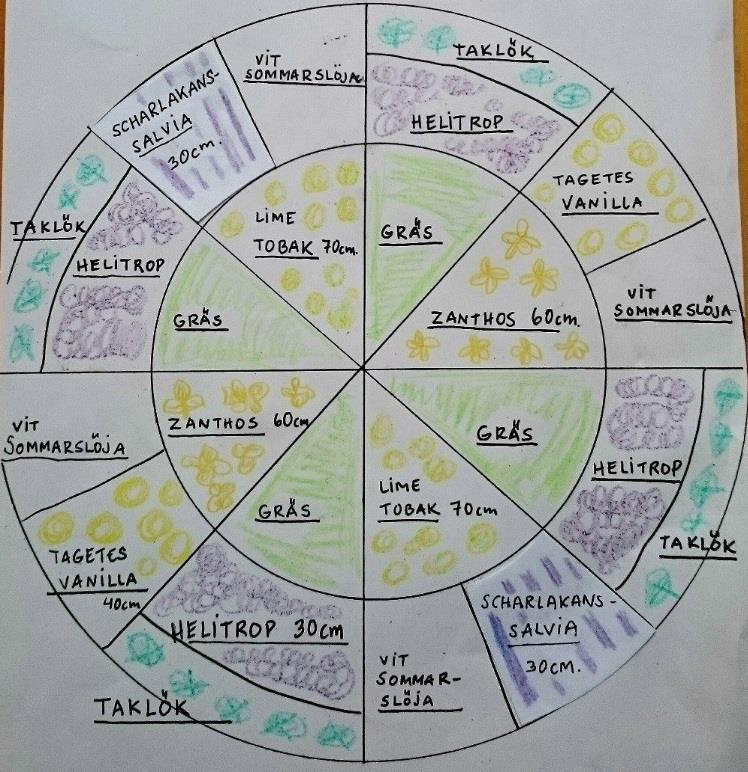 VIT
SOMMARSLÖJA
TAKLÖK
HELITROP
SCHARLAKANS-
SALVIA
30cm.
TAGETES
VANILLA
LIME
TOBAK 70cm.
GRÄS
TAKLÖK
HELITROP
GRÄS
ZANTHOS 60cm.
VIT
SOMMARSLÖJA
ZANTHOS 60cm
GRÄS
VIT
SOMMARSLÖJA
HELITROP
TAKLÖK
LIME
TOBAK 70cm
GRÄS
TAGETES
VANILLA
40cm
HELITROP 30cm
TAKLÖK
VIT
SOMMAR-
SLÖJA
SCHARLAKANS-
SALVIA
30cm.